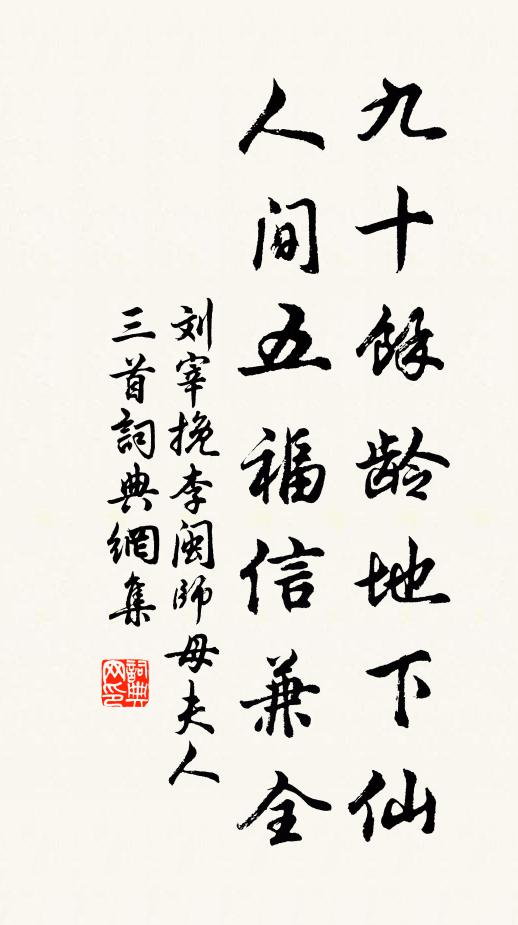 九十餘龄地下仙
人间五福信兼全
刘宰挽李闽師母夫人
三首詞典網集
詞典网印